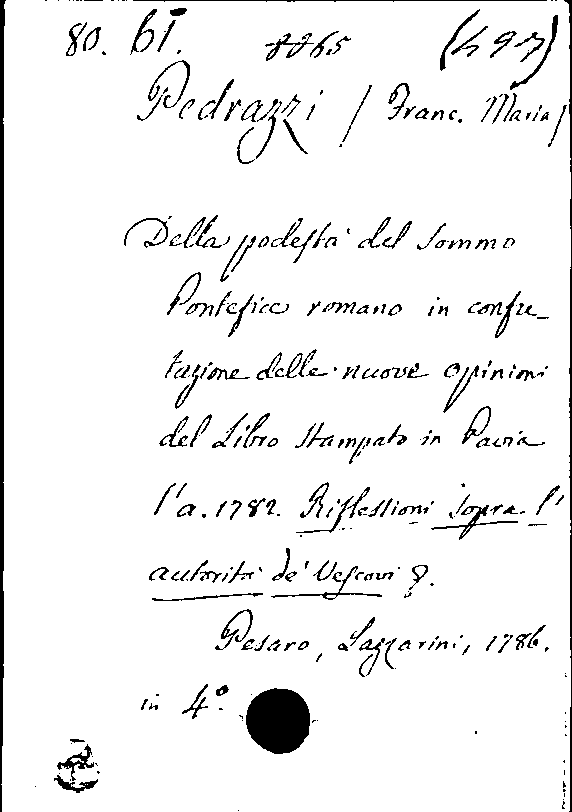 80. bī. 8865 (497)
Pedrazzi / Franc. Maria /
Della podestà del sommo
Pontefice romano in confu-
tazione delle nuove opinioni
del Libro stampato in Pavia
l'a. 1782. Riflessioni sopra l'
autorità de' Vescovi
Pesaro, Lazzarini, 1786.
in 4º.